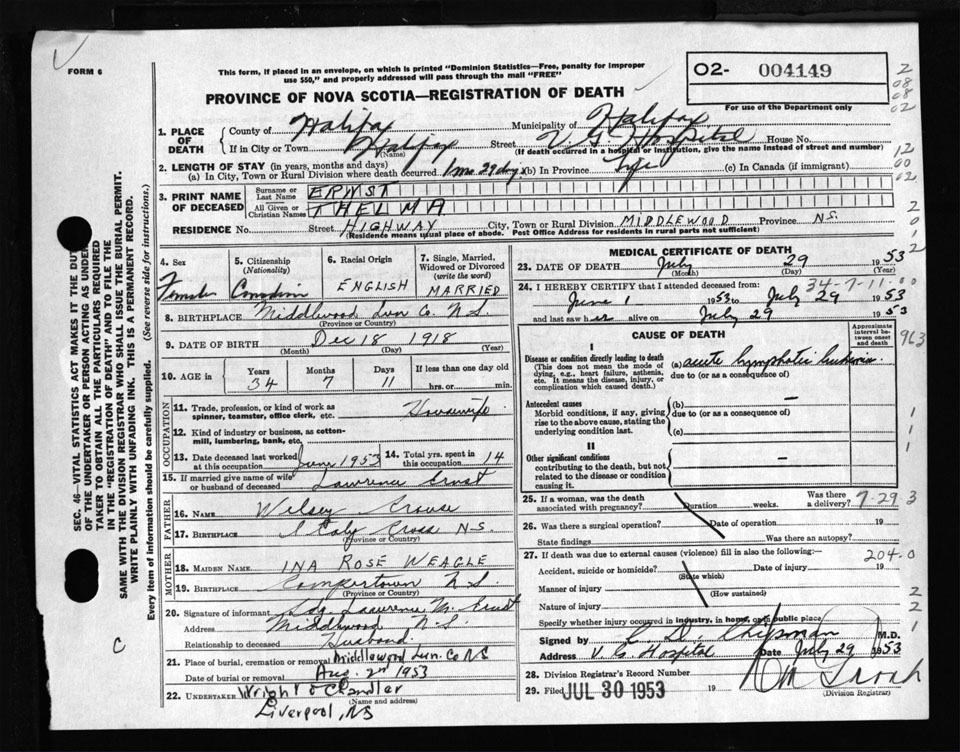 FORM 6
This form, if placed in an envelope, on which is printed "Dominion Statistics—Free, penalty for improper
use $50," and properly addressed will pass through the mail "FREE"
02- 004149
For use of the Department only
PROVINCE OF NOVA SCOTIA—REGISTRATION OF DEATH
1. PLACE OF DEATH
County of Halifax Municipality of Halifax
If in City or Town Halifax (Name) Street V. G. Hospital House No.
(If death occurred in a hospital or institution, give name instead of street and number)
2. LENGTH OF STAY (in years, months and days)
(a) In City, Town or Rural Division where death occurred 1 mo 29 days (b) In Province Life (c) In Canada (if immigrant)
3. PRINT NAME OF DECEASED
Surname or Last Name ERNST
All Given or Christian Names THELMA
RESIDENCE No. Street HIGHWAY City, Town or Rural Division MIDDLEWOOD Province N.S.
(Residence means usual place of abode. Post Office Address for residents in rural parts not sufficient)
4. Sex
Female
5. Citizenship (Nationality)
Canadian
6. Racial Origin
ENGLISH
7. Single, Married, Widowed or Divorced (write the word)
MARRIED
8. BIRTHPLACE Middlewood Lun Co. N.S.
(Province or Country)
9. DATE OF BIRTH Dec 18 1918
(Month) (Day) (Year)
10. AGE in Years 34 Months 7 Days 11 If less than one day
hrs. or min.
OCCUPATION
11. Trade, profession, or kind of work as spinner, teamster, office clerk, etc. Housewife
12. Kind of industry or business, as cotton-mill, lumbering, bank, etc.
13. Date deceased last worked at this occupation June 1953
14. Total yrs. spent in this occupation 14
15. If married give name of wife or husband of deceased Lawrence Ernst
FATHER
16. NAME Crouse
17. BIRTHPLACE Italy Cross N.S.
(Province or Country)
MOTHER
18. MAIDEN NAME INA ROSE WEAGLE
19. BIRTHPLACE N.S.
(Province or Country)
20. Signature of informant Sdg. Lawrence M. Ernst
Address Middlewood N.S.
Relationship to deceased Husband
21. Place of burial, cremation or removal Middlewood Lun. Co NS
Date of burial or removal Aug. 2nd 1953
22. UNDERTAKER Wright & Chandler
(Name and address)
Liverpool, NS
MEDICAL CERTIFICATE OF DEATH
23. DATE OF DEATH July 29 1953
(Month) (Day) (Year)
34-7-11-00
24. I HEREBY CERTIFY that I attended deceased from:
June 1 1953 to July 29 1953
and last saw her alive on July 29 1953
CAUSE OF DEATH
Approximate interval between onset and death
963
I
Disease or condition directly leading to death
(This does not mean the mode of dying, e.g., heart failure, asthenia, etc. It means the disease, injury, or complication which caused death.)
(a) acute lymphatic leukemia
due to (or as a consequence of)
Antecedent causes
Morbid conditions, if any, giving rise to the above cause, stating the underlying condition last.
(b) —
due to (or as a consequence of)
(c)
II
Other significant conditions
contributing to the death, but not related to the disease or condition causing it.
—
25. If a woman, was the death associated with pregnancy? Duration weeks. Was there a delivery? 7-29 3
26. Was there a surgical operation? Date of operation 19
State findings Was there an autopsy?
27. If death was due to external causes (violence) fill in also the following:—
204-0
Accident, suicide or homicide? (State which) Date of injury 19
Manner of injury
(How sustained)
Nature of injury
Specify whether injury occurred in industry, in home, or in public place
Signed by C. D. Chipman M.D.
Address V. G. Hospital Date July 29 1953
28. Division Registrar's Record Number
29. Filed JUL 30 1953 19
(Division Registrar)
SEC. 46—VITAL STATISTICS ACT MAKES IT THE DUTY
OF THE UNDERTAKER OR PERSON ACTING AS UNDER-
TAKER TO OBTAIN ALL THE PARTICULARS REQUIRED
IN THE "REGISTRATION OF DEATH" AND TO FILE THE
SAME WITH THE DIVISION REGISTRAR WHO SHALL ISSUE THE BURIAL PERMIT.
WRITE PLAINLY WITH UNFADING INK. THIS IS A PERMANENT RECORD.
Every item of information should be carefully supplied. (See reverse side for instructions.)
C